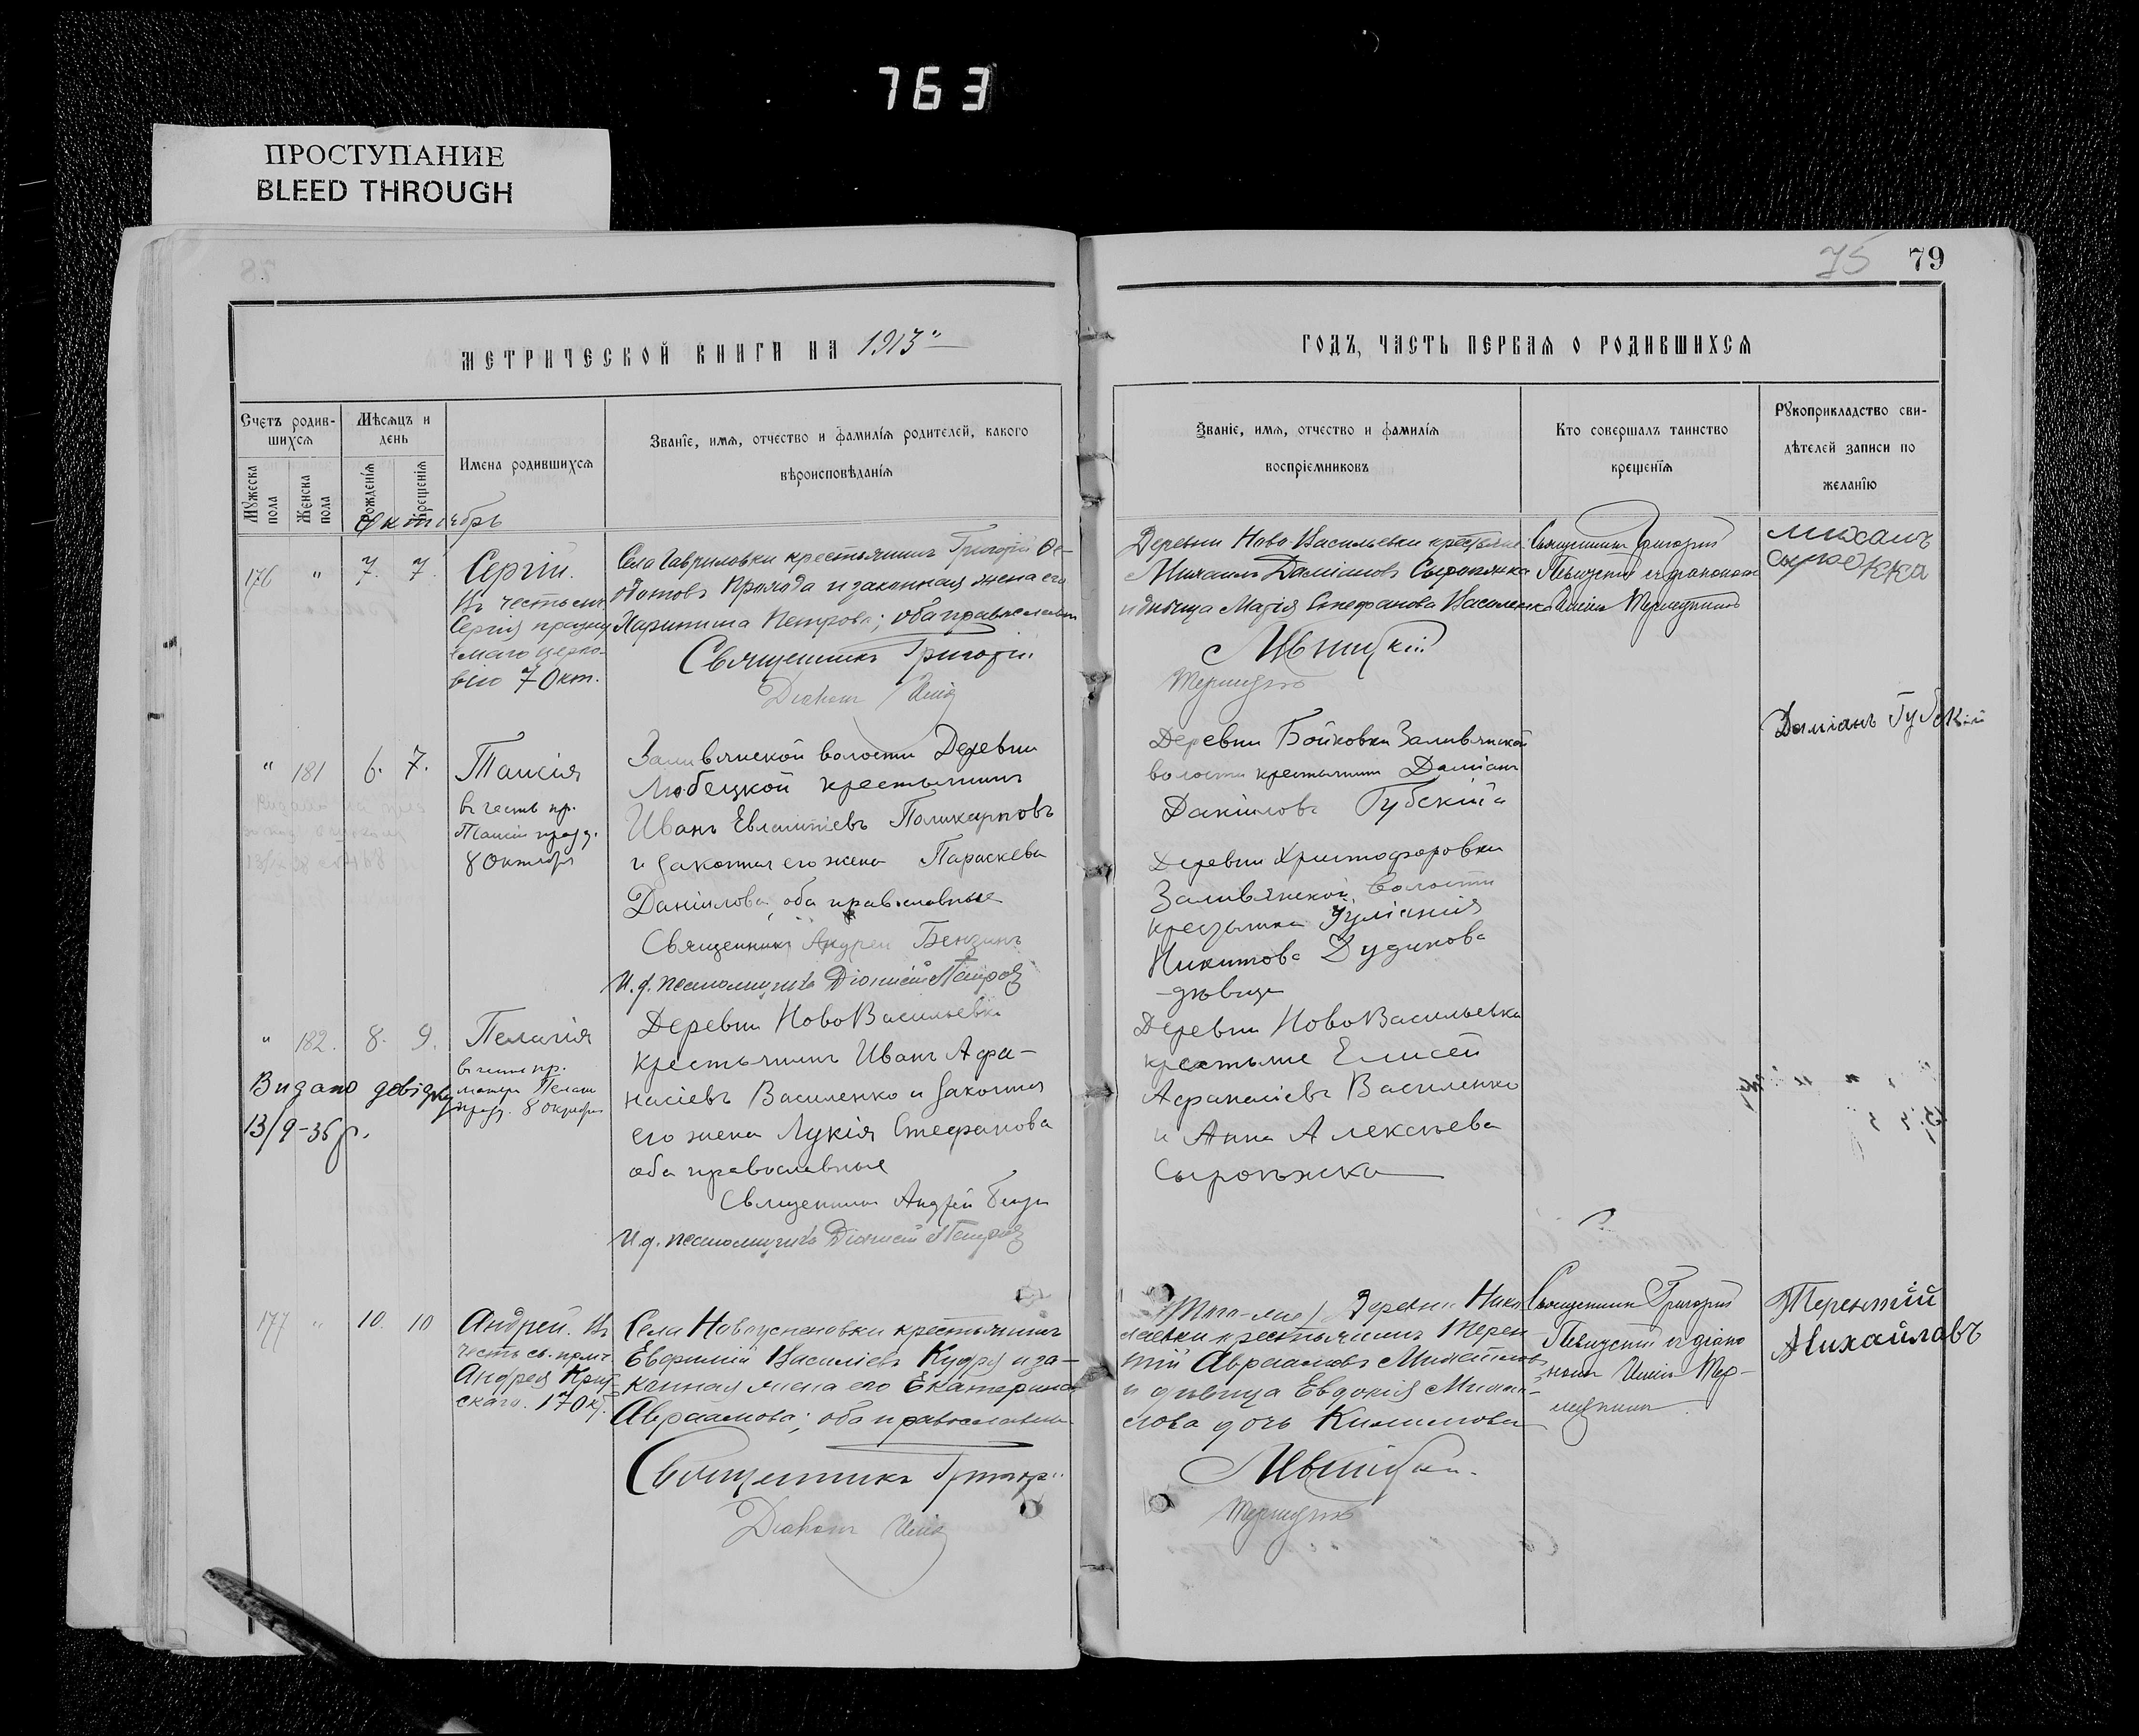 763
ПРОСТУПАНИЕ
BLEED THROUGH
75 79
МЕТРИЧЕСКОЙ КНИГИ НА 1913"
ГОДЪ, ЧАСТЬ ПЕРВАЯ О РОДИВШИХСЯ
Счетъ родив-
шихся
Мужеска пола
Женска пола
Мѣсяцъ и
день
Рожденія
Крещенія
Имена родившихся
Званіе, имя, отчество и фамилія родителей, какого
вѣроисповѣданія
Званіе, имя, отчество и фамилія
воспріемниковъ
Кто совершалъ таинство
крещенія
Рукоприкладство сви-
дѣтелей записи по
желанію
Октябрь
176 " 7. 7.
Сергій.
Въ честь св.
Сергія праздну
емаго церко-
вію 7 Окт.
Села Гавриловки крестьянинъ Григорій Ѳе-
дотовъ и законная жена его
Петрова; оба православные
Священникъ Григорій
Діаконъ
Деревни Ново-Васильевки
Михаилъ Даміановъ Сыроѣжка
и дѣвица Марія Стефанова Василенко
Священникъ Григорій
съ діакономъ
Михаилъ
Сыроежка
" 181 6. 7.
Таисія
въ честь пр.
Таисіи празд.
8 Октября
Заливянской волости Деревни
Любецкой крестьянинъ
Иванъ Поликарповъ
и законная его жена Параскева
Даніилова, оба православные
Священникъ Андрей Бензинъ
И.д. псаломщика Діонисій
Деревни Бойковки Заливянской
волости крестьянинъ Даміанъ
Даніиловъ Губскій и
Деревни Христофоровки
Заливянской волости
крестьянка Іуліанія
Никитова Дудикова
дѣвица
Даміанъ Губскій
" 182. 8. 9.
Пелагія
въ честь пр.
матери Пелагіи
празд. 8 Октября
Видано довідку
13/9-36 р.
Деревни НовоВасильевки
крестьянинъ Иванъ Афа-
насіевъ Василенко и законная
его жена Лукія Стефанова
оба православные
Священникъ Андрей
И.д. псаломщика Діонисій
Деревни НовоВасильевки
крестьяне Елисей
Афанасіевъ Василенко
и Анна Алексѣева
Сыроѣжка
177 " 10. 10
Андрей. Въ
честь св. прмч.
Андрея Крит-
скаго. 17 Окт.
Села Новоуспеновки крестьянинъ
Евфимій Василіевъ Кудря и за-
конная жена его Екатерина
Авраамова; оба православные
Священникъ Григорій
Діаконъ
Того-же / Деревни Нико
лаевки крестьянинъ Терен
тій Авраамовъ Михайловъ
и дѣвица Евдокія
дочь
Священникъ Григорій
съ діако
номъ
Терентій
Михайловъ